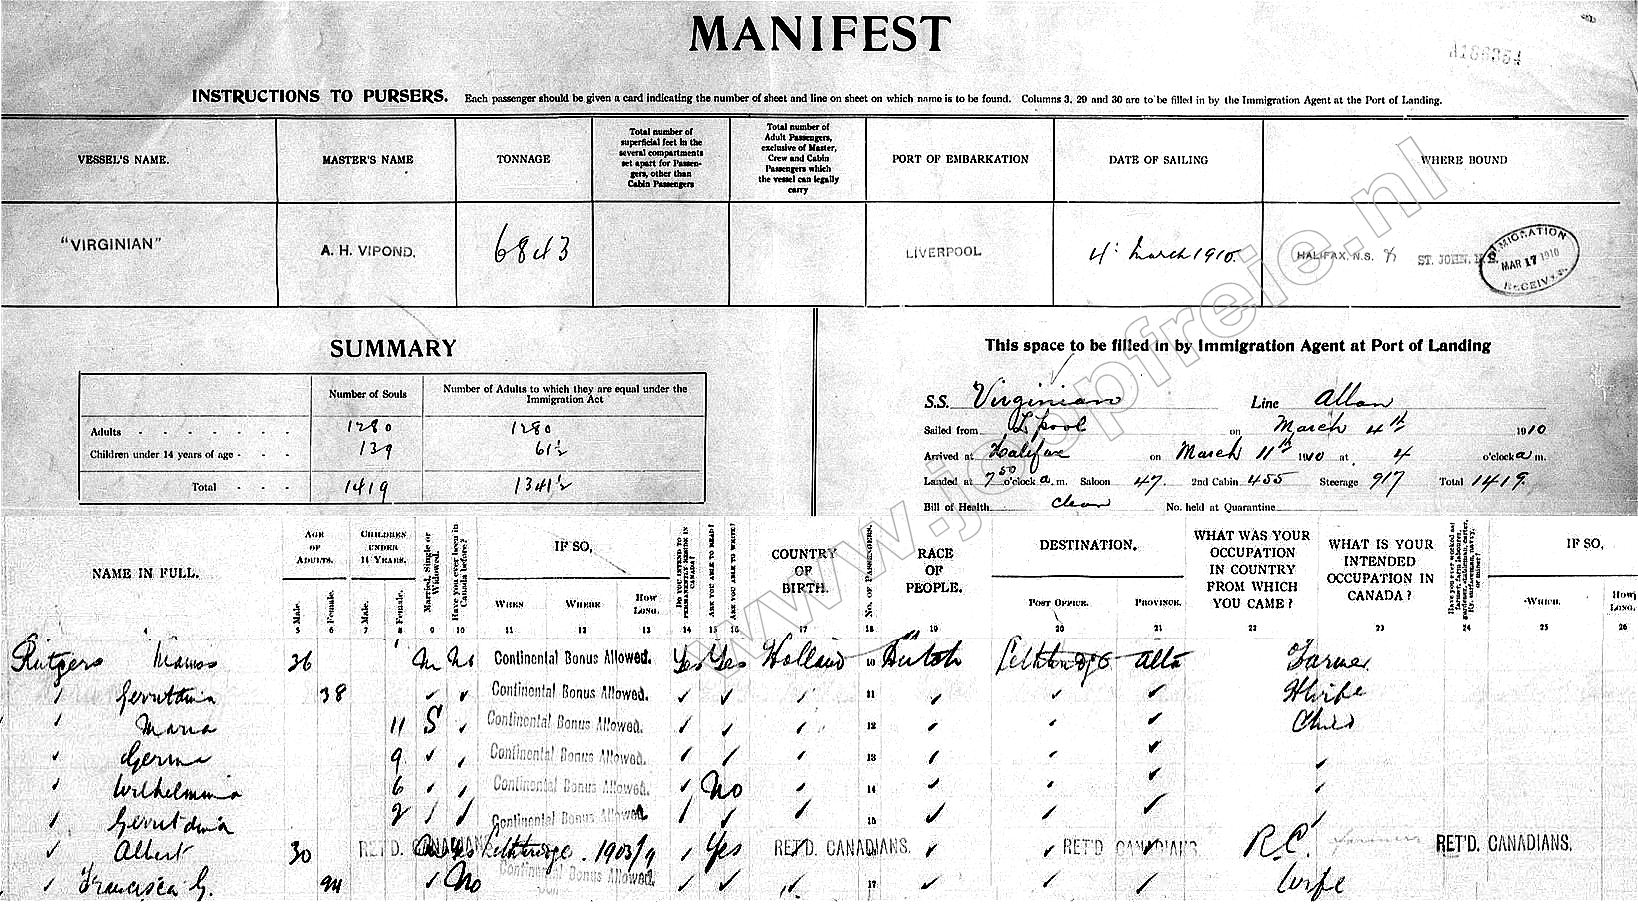 MANIFEST
A186354
INSTRUCTIONS TO PURSERS. Each passenger should be given a card indicating the number of sheet and line on sheet on which name is to be found. Columns 3, 29 and 30 are to be filled in by the Immigration Agent at the Port of Landing.
VESSEL'S NAME. MASTER'S NAME TONNAGE Total number of superficial feet in the several compartments set apart for Passengers, other than Cabin Passengers Total number of Adult Passengers, exclusive of Master, Crew and Cabin Passengers which the vessel can legally carry PORT OF EMBARKATION DATE OF SAILING WHERE BOUND
"VIRGINIAN" A. H. VIPOND. 6843 LIVERPOOL 4: March 1910. HALIFAX, N.S. & ST. JOHN, N.B.
IMMIGRATION
MAR 17 1910
RECEIVED
SUMMARY
Number of Souls Number of Adults to which they are equal under the Immigration Act
Adults 1280 1280
Children under 14 years of age 139 61½
Total 1419 1341½
This space to be filled in by Immigration Agent at Port of Landing
S.S. Virginian Line Allan
Sailed from L'pool on March 4th 1910
Arrived at Halifax on March 11th 1910 at 4 o'clock a m.
Landed at 7 50 o'clock a. m. Saloon 47. 2nd Cabin 455 Steerage 917 Total 1419.
Bill of Health Clean No. held at Quarantine
NAME IN FULL. AGE OF ADULTS. CHILDREN UNDER 14 YEARS. Married, Single or Widowed. Have you ever been in Canada before? IF SO, DO YOU INTEND TO PERMANENTLY RESIDE IN CANADA? ARE YOU ABLE TO READ? ARE YOU ABLE TO WRITE? COUNTRY OF BIRTH. NO. OF PASSENGERS. RACE OF PEOPLE. DESTINATION. WHAT WAS YOUR OCCUPATION IN COUNTRY FROM WHICH YOU CAME? WHAT IS YOUR INTENDED OCCUPATION IN CANADA? IF SO,
Male. Female. Male. Female. WHEN WHERE HOW LONG. POST OFFICE. PROVINCE. WHICH. HOW LONG.
5 6 7 8 9 10 11 12 13 14 15 16 17 18 19 20 21 22 23 24 25 26
Rutgers Manus 36 M No Continental Bonus Allowed. Yes Yes Holland 10 Dutch Lethbridge Alta Farmer
" Gerritdina 38 Continental Bonus Allowed. 11 H Wife
" Maria 11 S Continental Bonus Allowed. 12 Child
" Germa 9 Continental Bonus Allowed. 13
" Wilhelmina 6 Continental Bonus Allowed. No 14
" Gerritdina 2 Continental Bonus Allowed. 15
" Albert 30 RET'D. CANADIANS. Yes Lethbridge. 1903/9 Yes RET'D. CANADIANS. RET'D CANADIANS. R.C. RET'D. CANADIANS.
" Francisca G. 24 No Continental Bonus Allowed. 17 Wife
www.joopfreie.nl